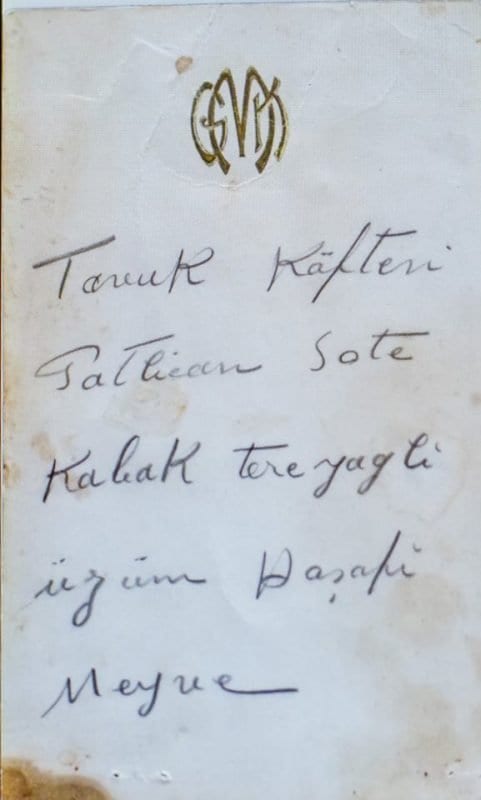 Tavuk Köfteri
Patlican Sote
Kabak tereyagli
üzüm Hoşafi
Meyve